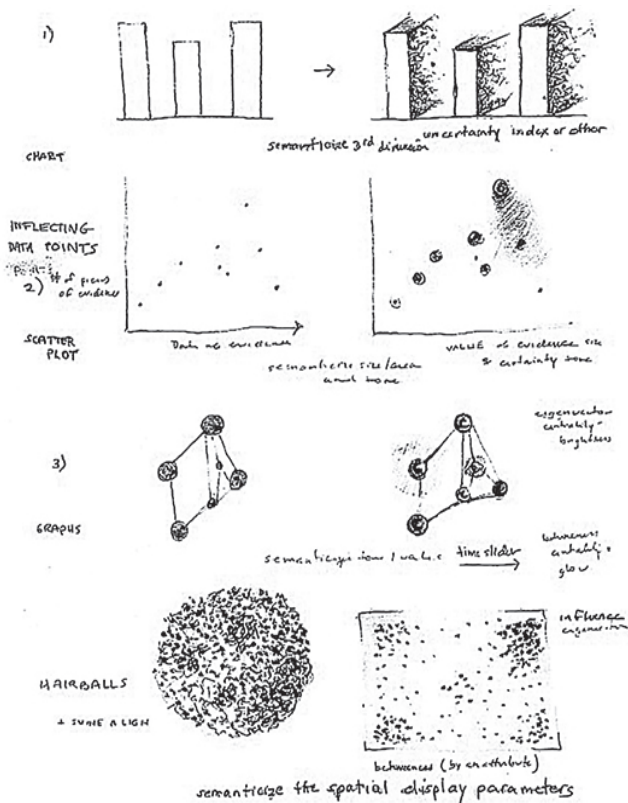 1)
CHART
semanticize 3rd dimension
uncertainty index or other
INFLECTING
DATA POINTS
2) # of pieces
of evidence
SCATTER
PLOT
Data as evidence
semanticize size/area
and tone
VALUE of evidence size
& certainty tone
3)
GRAPHS
eigenvector
centrality
brightness
value time slider
betweenness
centrality
glow
HAIRBALLS
influence
betweenness (by an attribute)
semanticize the spatial display parameters